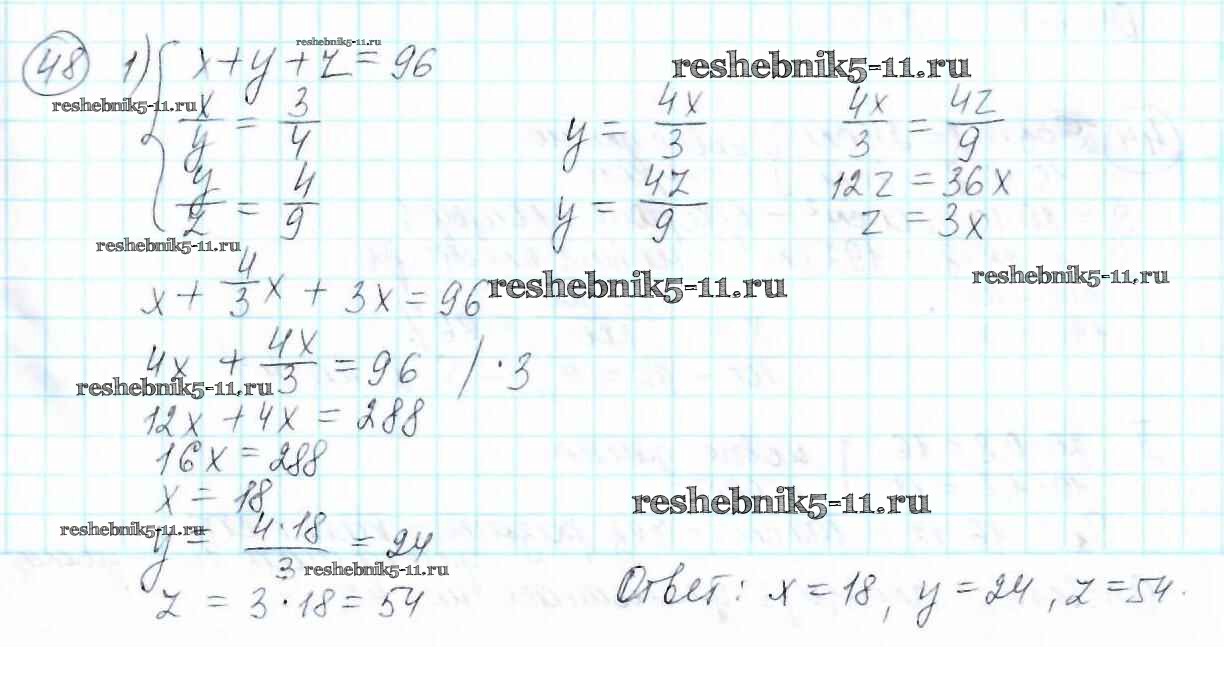 48 1) x + y + z = 96
reshebnik5-11.ru
reshebnik5-11.ru
reshebnik5-11.ru
x/y = 3/4
y = 4x/3
4x/3 = 4z/9
y/z = 4/9
y = 4z/9
12z = 36x
z = 3x
reshebnik5-11.ru
reshebnik5-11.ru
x + 4/3 x + 3x = 96
reshebnik5-11.ru
4x + 4x/3 = 96 / · 3
reshebnik5-11.ru
12x + 4x = 288
16x = 288
x = 18
reshebnik5-11.ru
reshebnik5-11.ru
y = 4·18/3 = 24
reshebnik5-11.ru
z = 3 · 18 = 54
Ответ: x = 18, y = 24, z = 54.